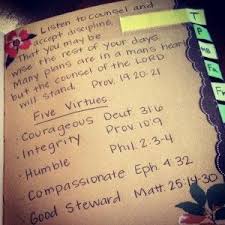 Listen to counsel and
accept discipline,
That you may be
wise the rest of your days.
Many plans are in a mans heart,
but the counsel of the LORD
will stand. Prov. 19:20-21
Five Virtues
· Courageous Deut 31:6
· Integrity Prov. 10:9
· Humble Phil. 2:3-4
· Compassionate Eph. 4:32
· Good Steward Matt. 25:14-30
T
P
MB
FR